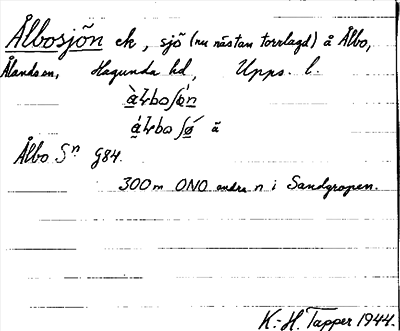 Ålbosjön ek, sjö (nu nästan torrlagd) å Ålbo,
Ålandssn, Hagunda hd, Upps. l.
Ålbo Sn G84.
300m ONO andra n i Sandgropen.
K.-H. Tapper 1944.